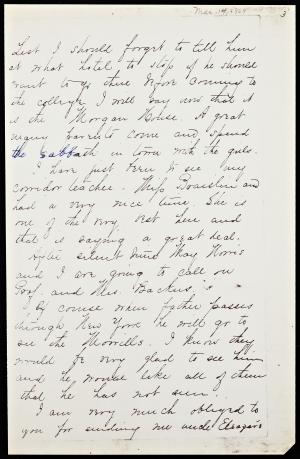 3
Lest I should forget to tell him
at what hotel to stop if he should
want to go there before coming to
the college I will say now that it
is the Morgan House. A great
many parents come and spend
the Sabbath in town with the girls.
I have just been to see my
corridor teacher. Miss and
had a very nice time. She is
one of the very best here and
that is saying a great deal.
After silent time May Norris
and I are going to call on
Prof. and Mrs. Backus.
Of course when father passes
through New York he will go to
see the Howells. I know they
would be very glad to see him
and he would like all of them
that he has not seen.
I am very much obliged to
you for sending me uncle